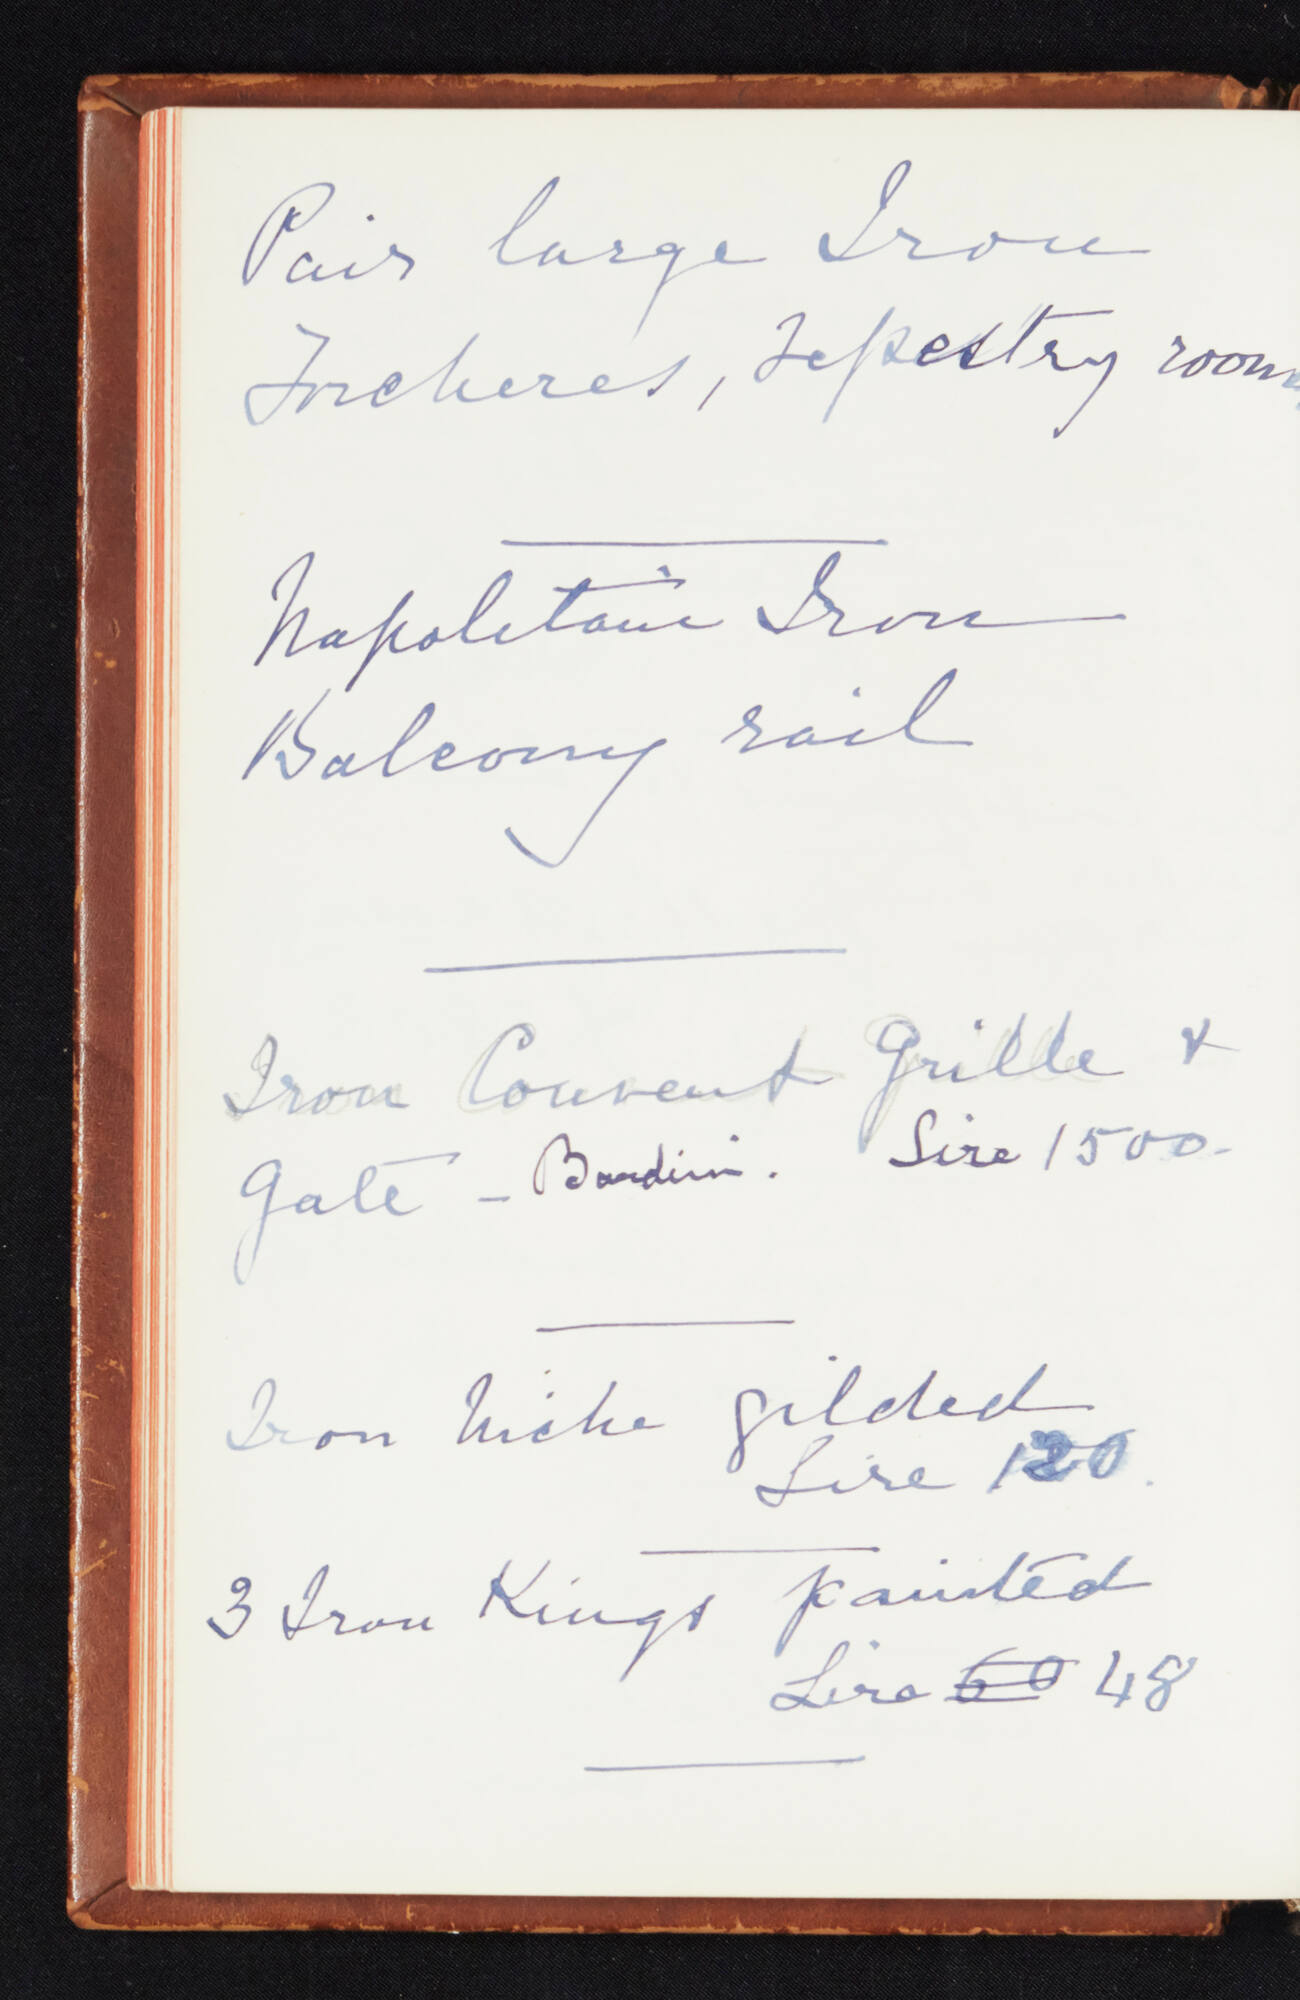 Pair large Iron
Torcheres, Tapestry room,
Napolitain Iron
Balcony rail
Iron Convent Grille &
Gate - Bardini. Lire 1500-
Iron Niche gilded
Lire 120.
3 Iron Kings painted
Lire 60 48